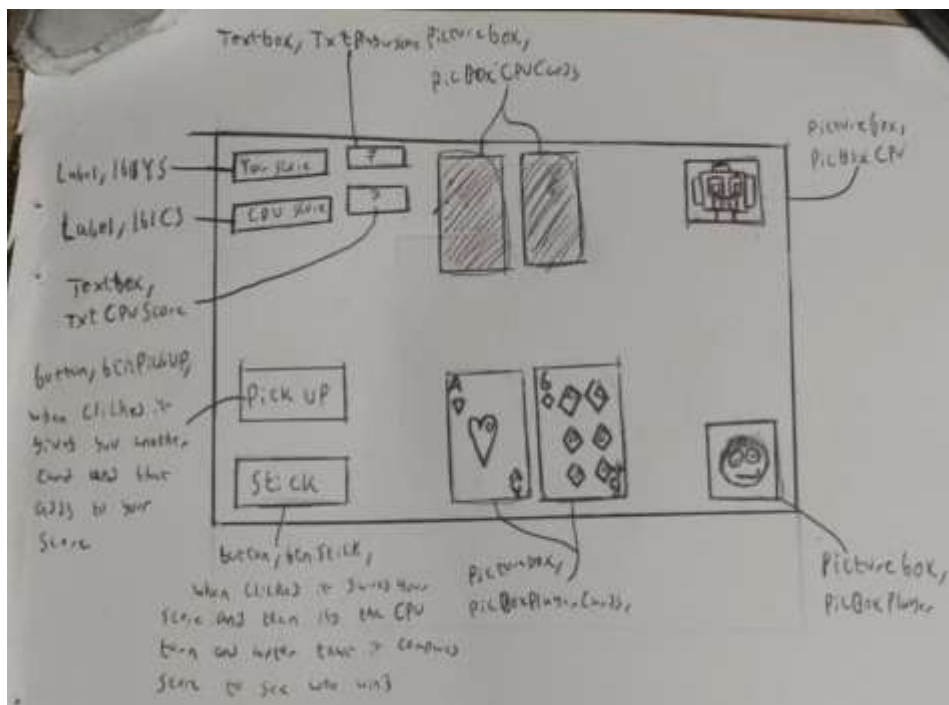 Textbox, TxtPlayerScore
Picturebox,
picBoxCPUCards
Picturebox,
PicBoxCPU
Label, lblYS
Your score
7
Label, lblCS
CPU score
?
Textbox,
TxtCPUScore
button, btnPickUP,
when clicked it
gives you another
card and that
adds to your
score
Pick up
Stick
A
6
button, btnStick,
when clicked it saves your
score and then its the CPU
turn and after that it compares
score to see who wins
Picturebox,
picBoxPlayerCards,
Picturebox,
PicBoxPlayer